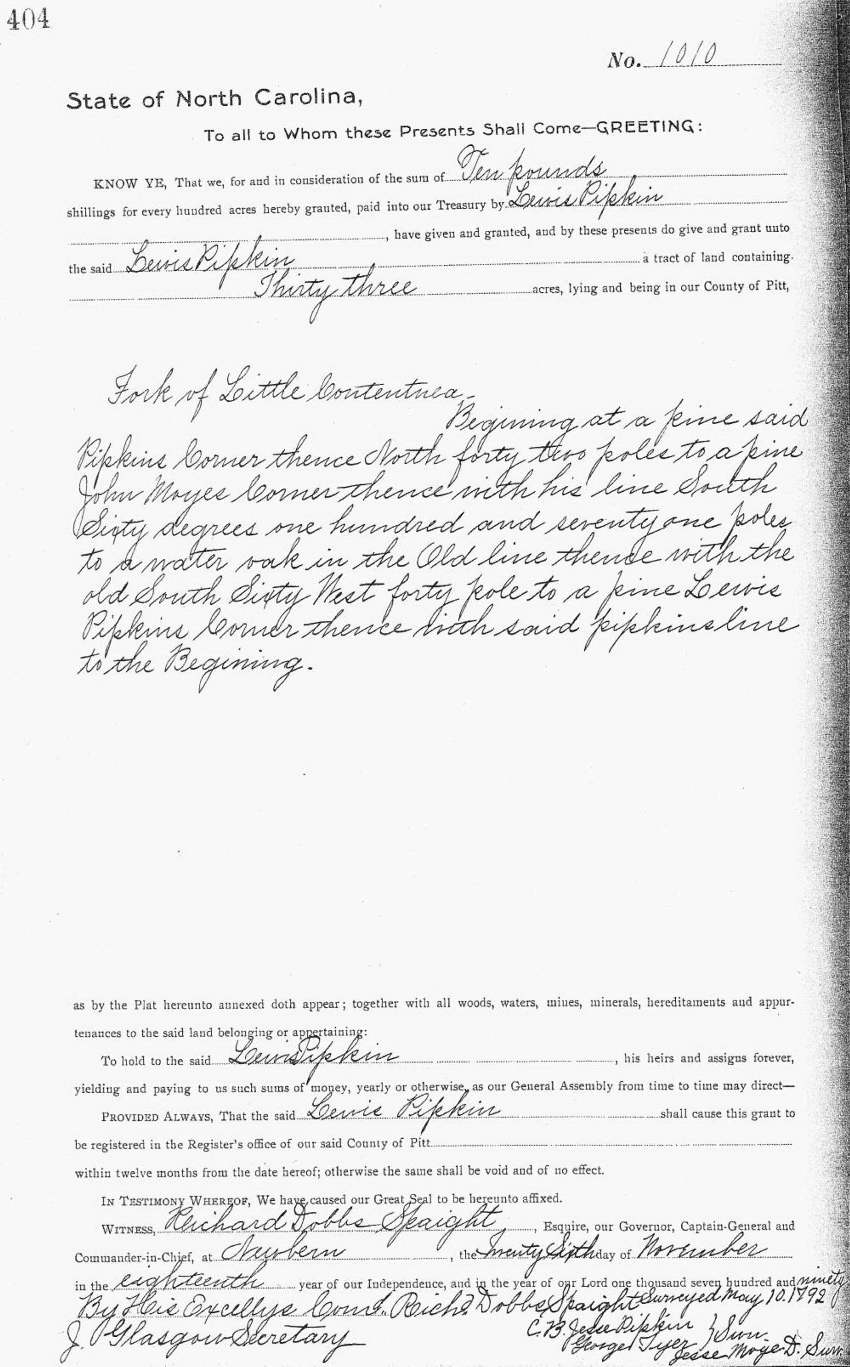 404
No. 1010
State of North Carolina,
To all to Whom these Presents Shall Come—GREETING:
KNOW YE, That we, for and in consideration of the sum of Ten pounds
shillings for every hundred acres hereby granted, paid into our Treasury by Lewis Pipkin
, have given and granted, and by these presents do give and grant unto
the said Lewis Pipkin a tract of land containing
Thirty three acres, lying and being in our County of Pitt,
Fork of Little Contentnea,
Begining at a pine said
Pipkins Corner thence North forty two poles to a pine
John Moyes Corner thence with his line South
Sixty degrees one hundred and seventy one poles
to a water oak in the Old line thence with the
old South Sixty West forty pole to a pine Lewis
Pipkins Corner thence with said pipkins line
to the Begining.
as by the Plat hereunto annexed doth appear; together with all woods, waters, mines, minerals, hereditaments and appur-
tenances to the said land belonging or appertaining:
To hold to the said Lewis Pipkin , his heirs and assigns forever,
yielding and paying to us such sums of money, yearly or otherwise, as our General Assembly from time to time may direct—
PROVIDED ALWAYS, That the said Lewis Pipkin shall cause this grant to
be registered in the Register's office of our said County of Pitt
within twelve months from the date hereof; otherwise the same shall be void and of no effect.
IN TESTIMONY WHEREOF, We have caused our Great Seal to be hereunto affixed.
WITNESS, Richard Dobbs Spaight , Esquire, our Governor, Captain-General and
Commander-in-Chief, at Newbern , the Twenty Sixth day of November
in the eighteenth year of our Independence, and in the year of our Lord one thousand seven hundred and ninety
By His Excellys Comd. Richd Dobbs Spaight Surveyed May 10. 1792
J. Glasgow Secretary
C.B. Jesse Pipkin
George Tyer } Swn.
Jesse Moye D. Surv